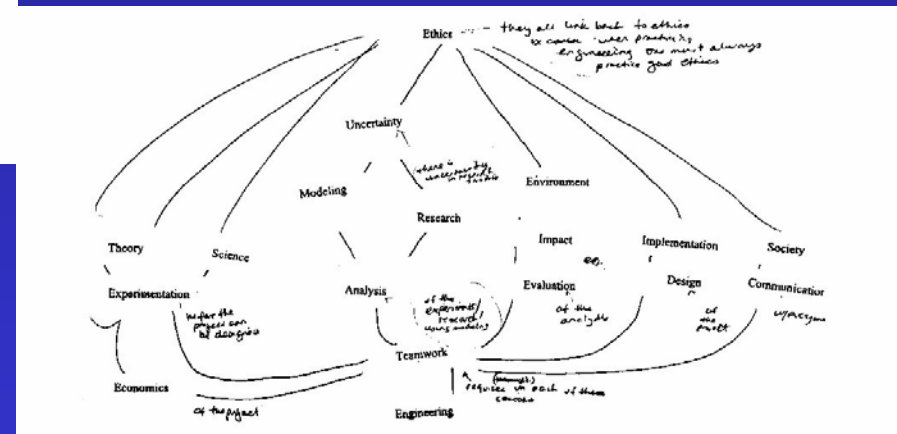 Ethics
they all link back to ethics
because when practicing
engineering one must always
practice good ethics
Uncertainty
there is
uncertainty
in
Modeling
Environment
Research
Theory
Science
Impact
Implementation
Society
Experimentation
Analysis
Evaluation
Design
Communication
before the
project can
be designed
of the
experiments/
research/
using modeling
of the
analysis
of
the
project
w/everyone
Teamwork
required in each of these
Economics
of the project
Engineering